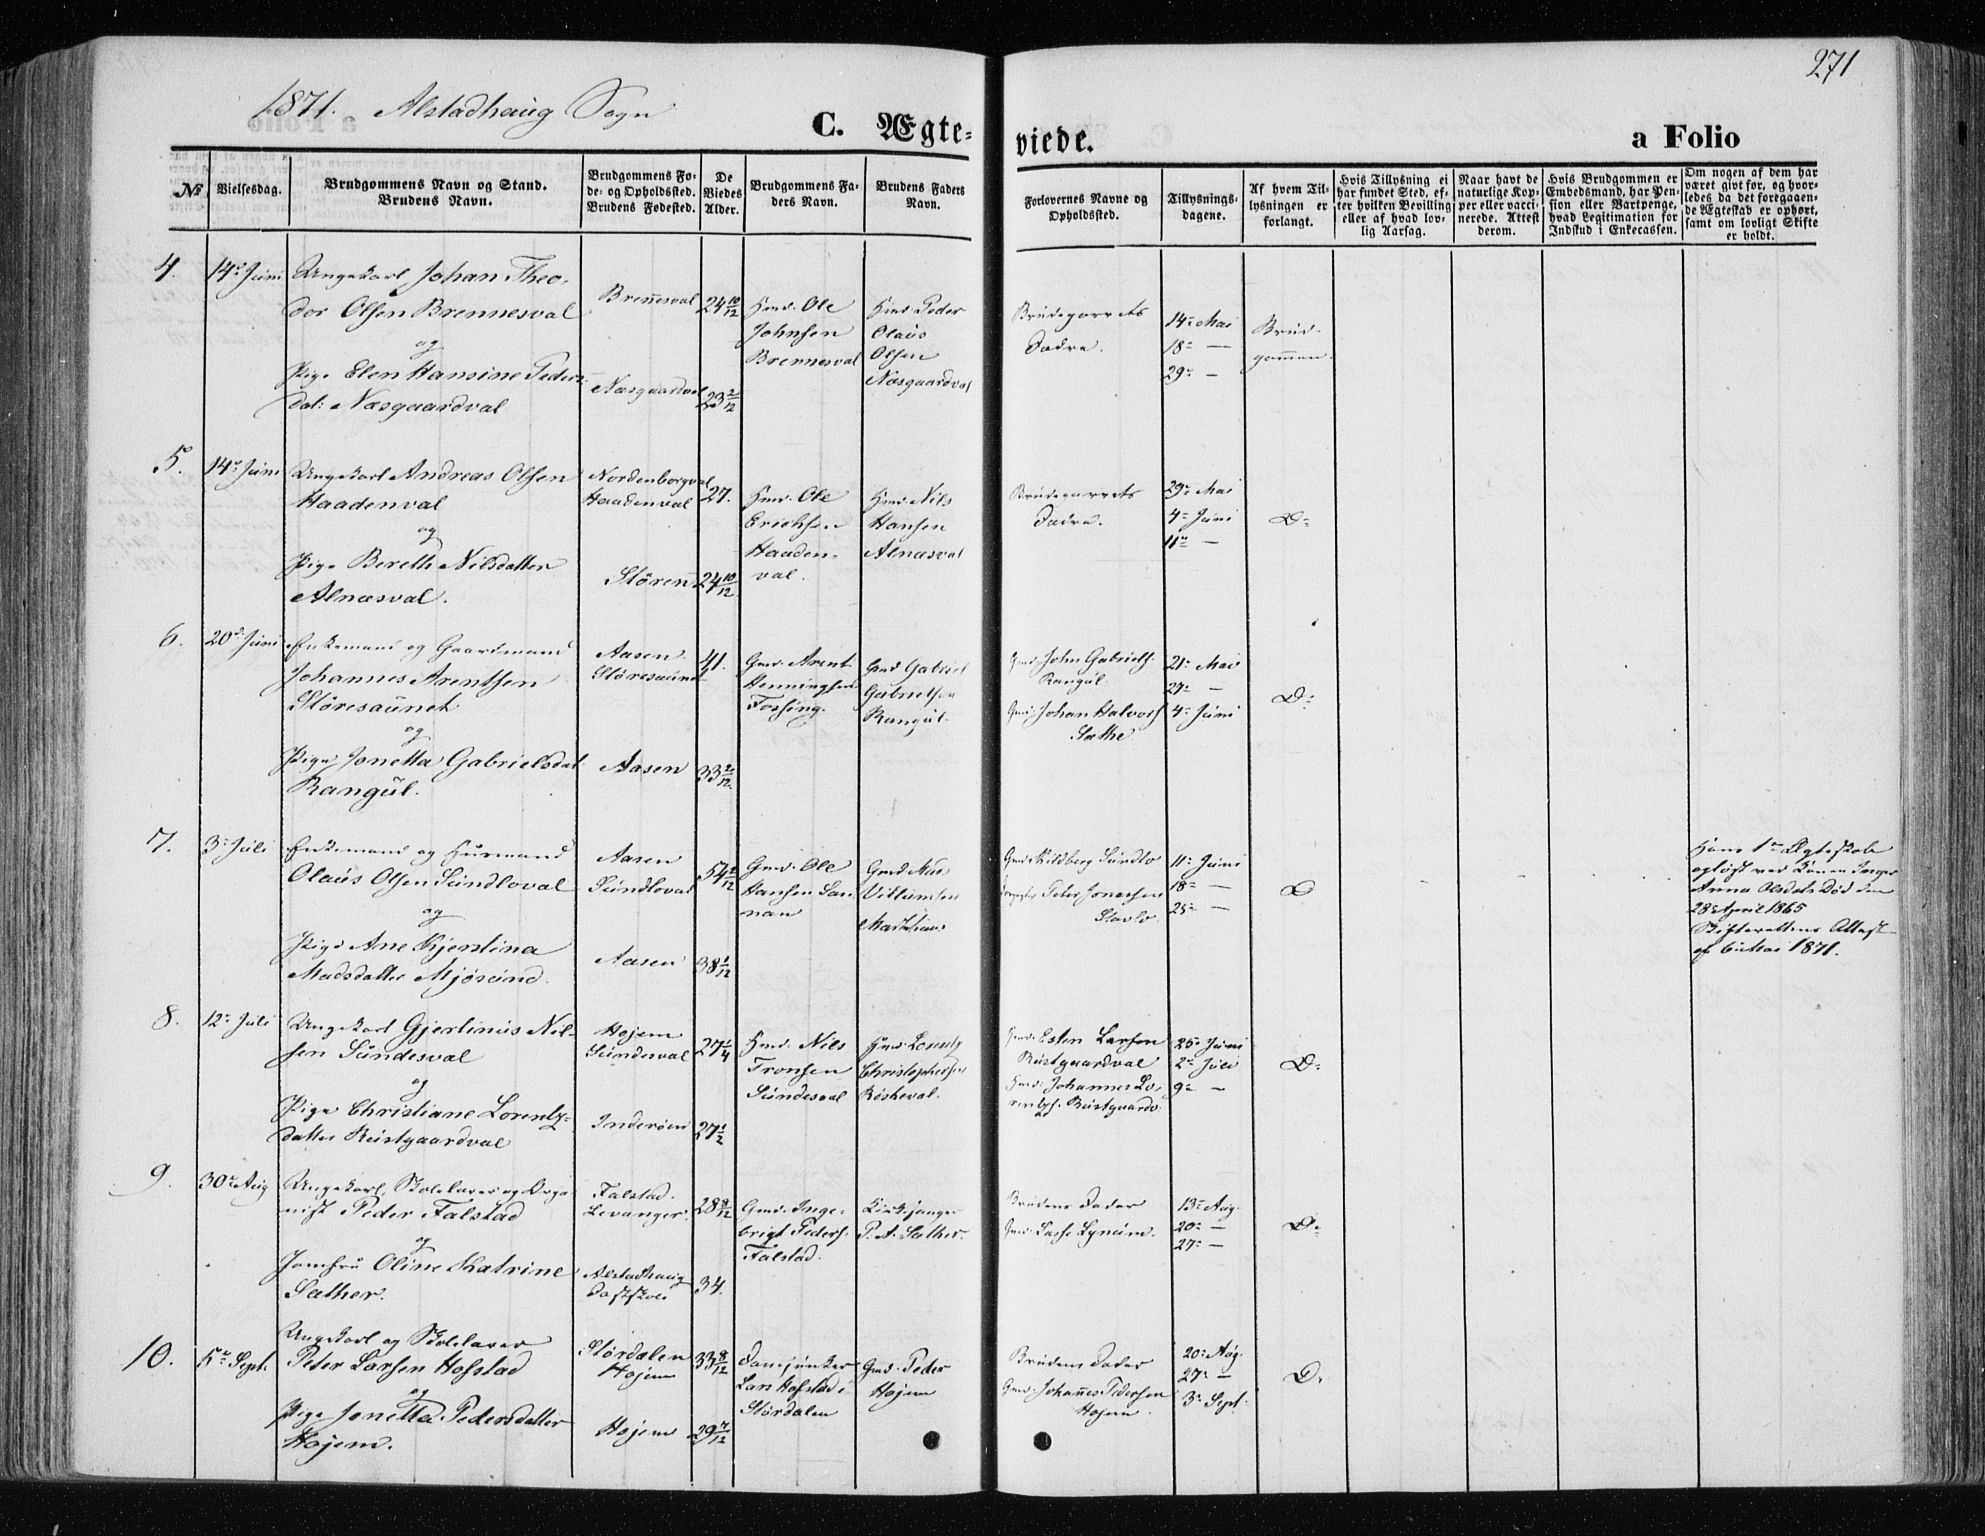 271
1871. Alstadhaug Sogn
C. Ægte-
viede.
a Folio
No
Vielsesdag.
Brudgommens Navn og Stand.
Brudens Navn.
Brudgommens Fø-
de- og Opholdssted.
Brudens Fødested.
De
Viedes
Alder.
Brudgommens Fa-
ders Navn.
Brudens Faders
Navn.
Forlovernes Navne og
Opholdssted.
Tillysnings-
dagene.
Af hvem Til-
lysningen er
forlangt.
Hvis Tillysning ei
har fundet Sted, ef-
ter hvilken Bevilling
eller af hvad lov-
lig Aarsag.
Naar havt de
naturlige Kop-
per eller vacci-
nerede. Attest
derom.
Hvis Brudgommen er
Embedsmand, har Pen-
sion eller Vartpenge,
hvad Legitimation for
Indskud i Enkecassen.
Om nogen af dem har
været givt før, og hvor-
ledes da det foregaaen-
de Ægteskab er ophørt,
samt om lovligt Skifte
er holdt.
4.
14de Juni
Ungekarl Johan Theo-
dor Olsen Brennesval
og
Pige Elen Hansine Peders-
dat: Næsgaardval
Brennesval
Næsgaardval
24 10/12
23 2/12
Hmd. Ole
Johnsen
Brennesval
Hmd. Peder
Olaus
Olsen
Næsgaardval
Brudeparrets
Fædre.
14de Mai
18de —
29de —
Brud-
gommen.
5.
14de Juni
Ungekarl Andreas Olsen
Haadenval
og
Pige Berethe Nilsdatter
Alnæsval.
Nordenborgval
Haadenval
Stören
27.
24 10/12
Hmd. Ole
Erichsen
Haaden-
val.
Hmd. Nils
Hansen
Alnæsval
Brudeparrets
Fædre.
29de Mai
4de Juni
11te —
D-
6.
20de Juni
Enkemand og Gaardmand
Johannes Arentsen
Störesaunet
og
Pige Jonetta Gabrielsdat
Rangul.
Aasen
Störesaunet
Aasen
41.
33 2/12
Gmd. Arent
Henningsen
Fossing.
Gmd Gabriel
Gabrielsen
Rangul.
Gmd John Gabriels.
Rangul.
Gmd. Johan Halvors
Sæthe
21de Mai
27de —
4de Juni
D-
7.
3die Juli
Enkemand og Husmand
Olaus Olsen Sundloval
og
Pige Ane Kjerstina
Madsdatter Mjösund.
Aasen
Sundloval
Aasen
54 2/12
38 1/12
Gmd. Ole
Hansen San-
nan
Gmd
Villumsen
Gmd Kildberg Sundlo
Peter Jonassen
Stavlo.
11te Juni
18de —
25de —
D
Hans 1ste Ægteskab
opløst ved Konen Inger
Anna Olsdats Død den
28de April 1865
Skifterettens Attest
af 6te Mai 1871.
8.
12te Juli
Ungekarl Gjertinus Nil-
sen Sundesval
og
Pige Christiane Lorentz-
datter Rustgaardval
Hojem
Sundesval
Inderöen
27 1/4
27 1/2
Hmd. Nils
Tronsen
Sundesval
Hmd. Lorentz
Christophersen
Röskeval.
Hmd. Esten Larsen
Rustgaardval
Hmd. Johannes Lo-
rentzs. Rustgaardv.
25de Juni
2den Juli
9de —
D-
9.
30te Aug
Ungekarl, Skolelærer og Orga-
nist Peder Falstad
og
Jomfru Oline Katrine
Sæther.
Falstad.
Levanger.
Alstadhaug
28 8/12
34.
Gmd. Inge-
brigt Peders.
Falstad.
Kirkesanger
P. A. Sæther.
Brudens Fader
Gmd. Lasse Lynum.
13de Aug.
20de —
27de —
D-
10.
5te Sept.
Ungekarl og Skolelærer
Peter Larsen Hofstad
og
Pige Jonetta Pedersdatter
Hojem.
Stördalen
Hojem
Hojem
33 8/12
29 7/12
Lars Hofstad i
Stördalen
Gmd. Peder
Hojem
Brudens Fader
Gmd. Johannes Pedersen
Hojem.
20de Aug.
27de —
3die Sept.
D.